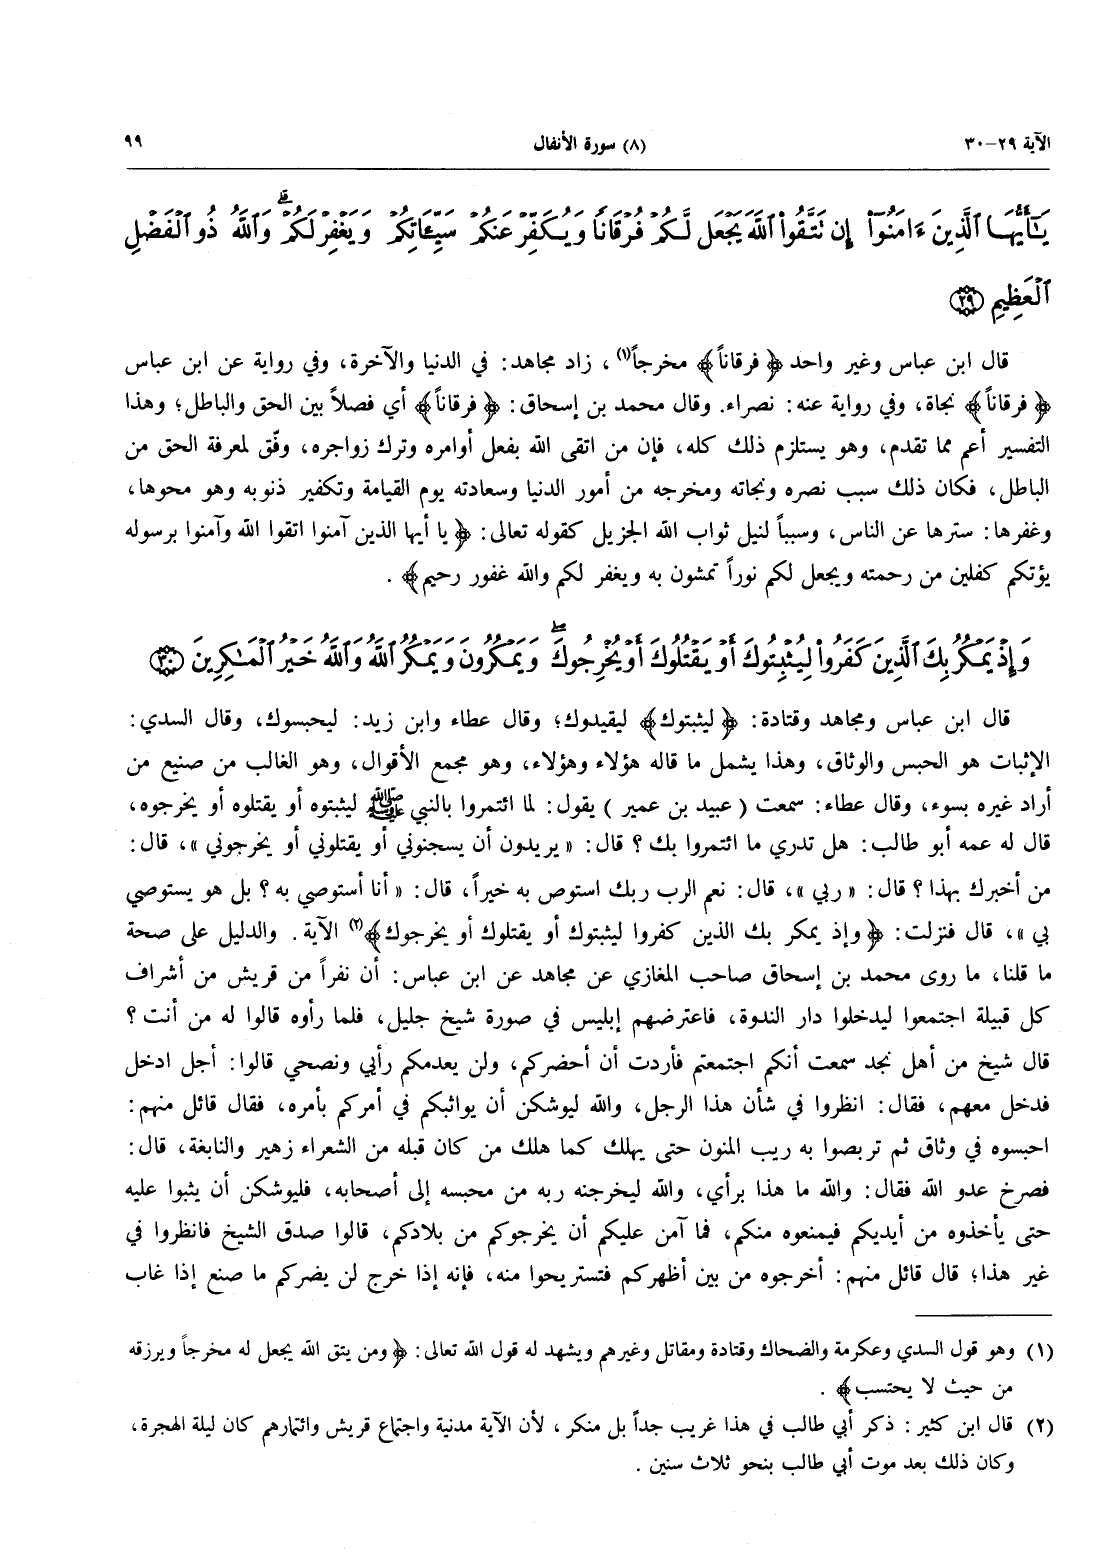 الآية ٢٩-٣٠
(٨) سورة الأنفال
٩٩
يَٰٓأَيُّهَا ٱلَّذِينَ ءَامَنُوٓا۟ إِن تَتَّقُوا۟ ٱللَّهَ يَجْعَل لَّكُمْ فُرْقَانًا وَيُكَفِّرْ عَنكُمْ سَيِّـَٔاتِكُمْ وَيَغْفِرْ لَكُمْ ۗ وَٱللَّهُ ذُو ٱلْفَضْلِ
ٱلْعَظِيمِ ٢٩
قال ابن عباس وغير واحد ﴿فرقاناً﴾ مخرجاً(١)، زاد مجاهد: في الدنيا والآخرة، وفي رواية عن ابن عباس
﴿فرقاناً﴾ نجاة، وفي رواية عنه: نصراء. وقال محمد بن إسحاق: ﴿فرقاناً﴾ أي فصلاً بين الحق والباطل؛ وهذا
التفسير أعم مما تقدم، وهو يستلزم ذلك كله، فإن من اتقى الله بفعل أوامره وترك زواجره، وفّق لمعرفة الحق من
الباطل، فكان ذلك سبب نصره ونجاته ومخرجه من أمور الدنيا وسعادته يوم القيامة وتكفير ذنوبه وهو محوها،
وغفرها: سترها عن الناس، وسبباً لنيل ثواب الله الجزيل كقوله تعالى: ﴿يا أيها الذين آمنوا اتقوا الله وآمنوا برسوله
يؤتكم كفلين من رحمته ويجعل لكم نوراً تمشون به ويغفر لكم والله غفور رحيم﴾ .
وَإِذْ يَمْكُرُ بِكَ ٱلَّذِينَ كَفَرُوا۟ لِيُثْبِتُوكَ أَوْ يَقْتُلُوكَ أَوْ يُخْرِجُوكَ ۖ وَيَمْكُرُونَ وَيَمْكُرُ ٱللَّهُ وَٱللَّهُ خَيْرُ ٱلْمَٰكِرِينَ ٣٠
قال ابن عباس ومجاهد وقتادة: ﴿ليثبتوك﴾ ليقيدوك؛ وقال عطاء وابن زيد: ليحبسوك، وقال السدي:
الإثبات هو الحبس والوثاق، وهذا يشمل ما قاله هؤلاء وهؤلاء، وهو مجمع الأقوال، وهو الغالب من صنيع من
أراد غيره بسوء، وقال عطاء: سمعت (عبيد بن عمير) يقول: لما ائتمروا بالنبي ﷺ ليثبتوه أو يقتلوه أو يخرجوه،
قال له عمه أبو طالب: هل تدري ما ائتمروا بك؟ قال: « يريدون أن يسجنوني أو يقتلوني أو يخرجوني »، قال:
من أخبرك بهذا؟ قال: « ربي »، قال: نعم الرب ربك استوص به خيراً، قال: « أنا أستوصي به؟ بل هو يستوصي
بي »، قال فنزلت: ﴿وإذ يمكر بك الذين كفروا ليثبتوك أو يقتلوك أو يخرجوك﴾(٢) الآية. والدليل على صحة
ما قلنا، ما روى محمد بن إسحاق صاحب المغازي عن مجاهد عن ابن عباس: أن نفراً من قريش من أشراف
كل قبيلة اجتمعوا ليدخلوا دار الندوة، فاعترضهم إبليس في صورة شيخ جليل، فلما رأوه قالوا له من أنت؟
قال شيخ من أهل نجد سمعت أنكم اجتمعتم فأردت أن أحضركم، ولن يعدمكم رأيي ونصحي قالوا: أجل ادخل
فدخل معهم، فقال: انظروا في شأن هذا الرجل، والله ليوشكن أن يواثبكم في أمركم بأمره، فقال قائل منهم:
احبسوه في وثاق ثم تربصوا به ريب المنون حتى يهلك كما هلك من كان قبله من الشعراء زهير والنابغة، قال:
فصرخ عدو الله فقال: والله ما هذا برأي، والله ليخرجنه ربه من محبسه إلى أصحابه، فليوشكن أن يثبوا عليه
حتى يأخذوه من أيديكم فيمنعوه منكم، فما آمن عليكم أن يخرجوكم من بلادكم، قالوا صدق الشيخ فانظروا في
غير هذا؛ قال قائل منهم: أخرجوه من بين أظهركم فتستريحوا منه، فإنه إذا خرج لن يضركم ما صنع إذا غاب
(١) وهو قول السدي وعكرمة والضحاك وقتادة ومقاتل وغيرهم ويشهد له قول الله تعالى: ﴿ومن يتق الله يجعل له مخرجاً ويرزقه
من حيث لا يحتسب﴾ .
(٢) قال ابن كثير: ذكر أبي طالب في هذا غريب جداً بل منكر، لأن الآية مدنية واجتماع قريش وائتمارهم كان ليلة الهجرة،
وكان ذلك بعد موت أبي طالب بنحو ثلاث سنين .